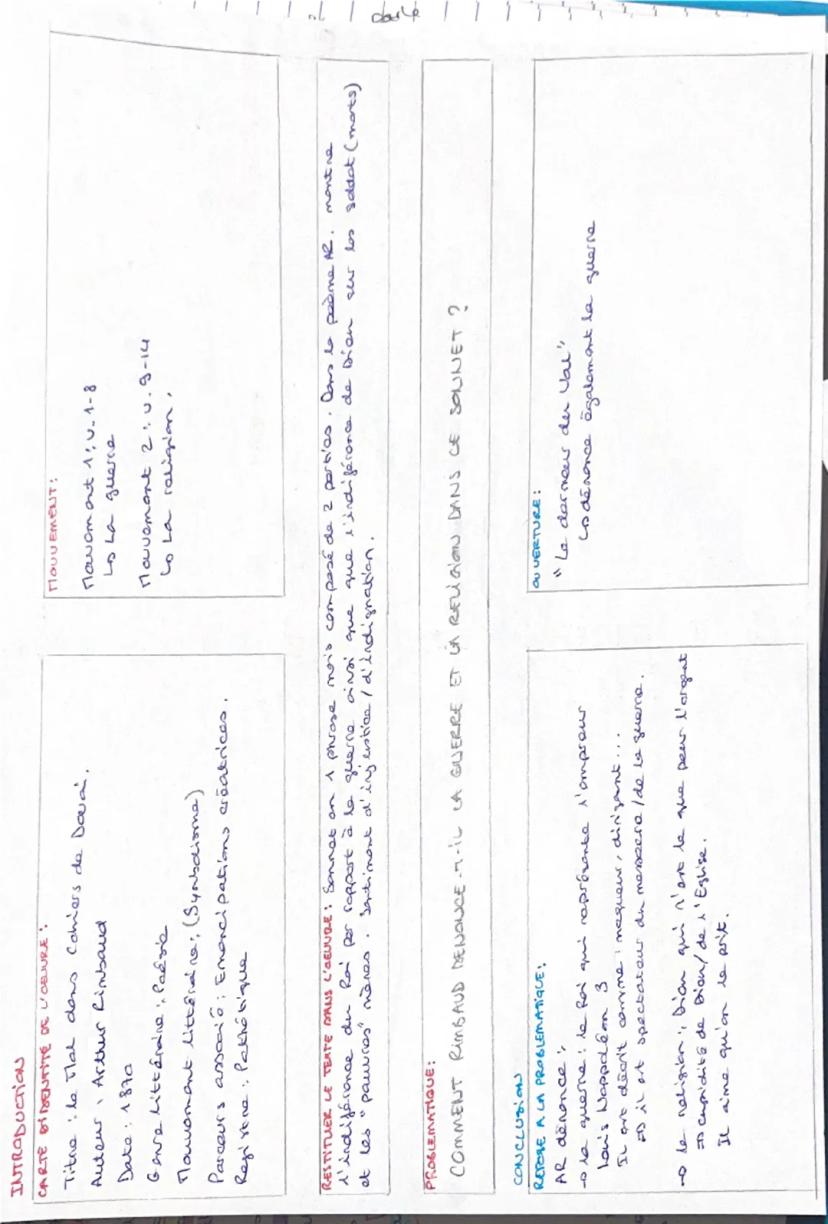 INTRODUCTION
CARTE D'IDENTITÉ DE L'OEUVRE :
Titre : le Mal dans Cahiers de Douai.
Auteur : Arthur Rimbaud
Date : 1870
Genre littéraire : Poésie
Mouvement littéraire : (Symbolisme)
Parcours associé : Emancipations créatrices.
Registre : Pathétique
MOUVEMENT :
Mouvement 1 : v. 1-8
↳ La guerre
Mouvement 2 : v. 9-14
↳ La religion.
RESTITUER LE TEXTE DANS L'OEUVRE : Sonnet en 1 phrase mais composé de 2 parties. Dans le poème AR. montre
l'indiférence du Roi par rapport à la guerre ainsi que l'indiférence de Dieu sur les soldat (morts)
et les "pauvres" mères. Sentiment d'injustice / d'indignation.
PROBLEMATIQUE :
COMMENT RIMBAUD DENONCE-T-IL LA GUERRE ET LA RELIGION DANS CE SONNET ?
CONCLUSION
REPONSE A LA PROBLEMATIQUE :
AR dénonce :
→ la guerre : le Roi qui représente l'empereur
Louis Nappoléon 3
Il est décrit comme : moqueur, dirigant...
⇒ il est spectateur du massacre / de la guerre.
→ la religion : Dieu qui n'est là que pour l'argent
⇒ cupidité de Dieu / de l'Eglise.
Il aime qu'on le prit.
OUVERTURE :
"Le dormeur du Val"
↳ dénonce également la guerre